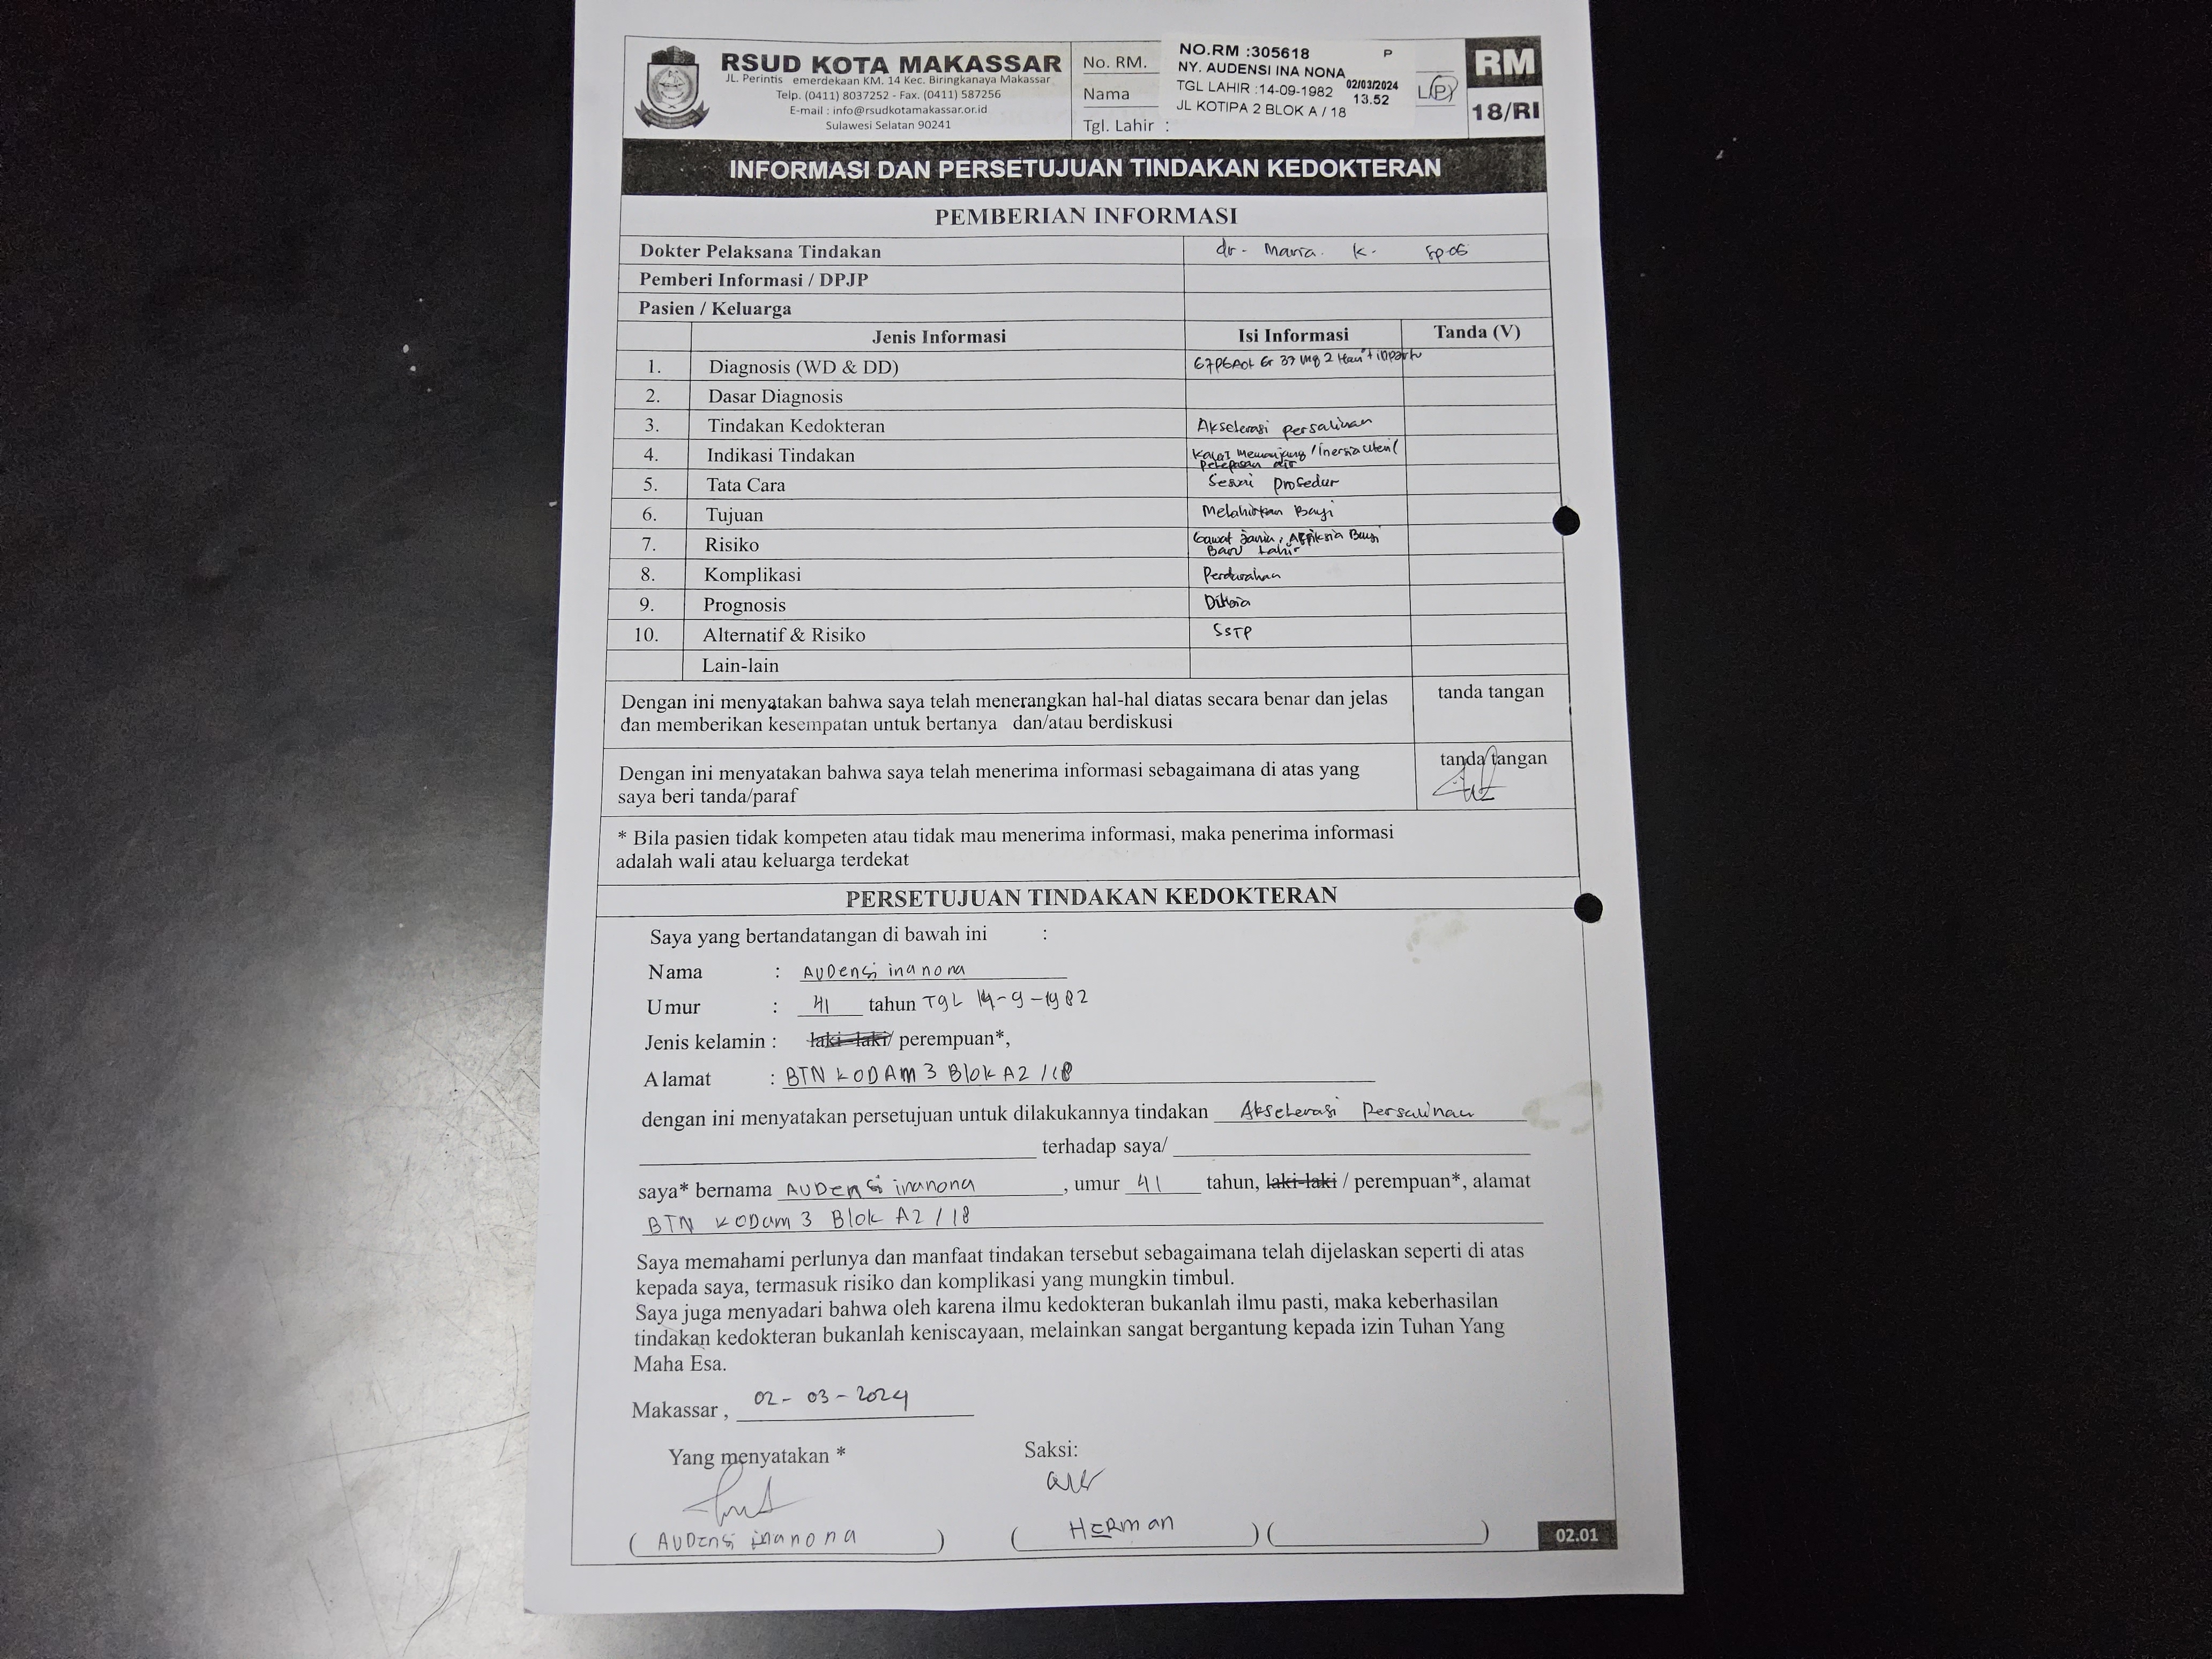 RSUD KOTA MAKASSAR
JL. Perintis emerdekaan KM. 14 Kec. Biringkanaya Makassar
Telp. (0411) 8037252 - Fax. (0411) 587256
E-mail : info@rsudkotamakassar.or.id
Sulawesi Selatan 90241
No. RM.
Nama
Tgl. Lahir :
NO.RM :305618 P
NY. AUDENSI INA NONA
TGL LAHIR :14-09-1982 02/03/2024
13.52
JL KOTIPA 2 BLOK A / 18
L/P
RM
18/RI
INFORMASI DAN PERSETUJUAN TINDAKAN KEDOKTERAN
PEMBERIAN INFORMASI
Dokter Pelaksana Tindakan dr. Maria. K. SpOG
Pemberi Informasi / DPJP
Pasien / Keluarga
Jenis Informasi Isi Informasi Tanda (V)
1. Diagnosis (WD & DD) G7P6A0 Gr 37 mg 2 Hari + inpartu
2. Dasar Diagnosis
3. Tindakan Kedokteran Akselerasi persalinan
4. Indikasi Tindakan Kala I memanjang / Inersia uteri /
5. Tata Cara Sesuai Prosedur
6. Tujuan Melahirkan Bayi
7. Risiko Gawat Janin, Asfiksia Bayi
Baru Lahir
8. Komplikasi Perdarahan
9. Prognosis
10. Alternatif & Risiko SSTP
Lain-lain
Dengan ini menyatakan bahwa saya telah menerangkan hal-hal diatas secara benar dan jelas
dan memberikan kesempatan untuk bertanya dan/atau berdiskusi
tanda tangan
Dengan ini menyatakan bahwa saya telah menerima informasi sebagaimana di atas yang
saya beri tanda/paraf
tanda tangan
* Bila pasien tidak kompeten atau tidak mau menerima informasi, maka penerima informasi
adalah wali atau keluarga terdekat
PERSETUJUAN TINDAKAN KEDOKTERAN
Saya yang bertandatangan di bawah ini :
Nama : AUDensi inanona
Umur : 41 tahun TGL 14-9-1982
Jenis kelamin : laki-laki/ perempuan*,
Alamat : BTN KODAM 3 Blok A2 /18
dengan ini menyatakan persetujuan untuk dilakukannya tindakan Akselerasi Persalinan
terhadap saya/
saya* bernama AUDensi inanona, umur 41 tahun, laki-laki / perempuan*, alamat
BTN KODam 3 Blok A2 / 18
Saya memahami perlunya dan manfaat tindakan tersebut sebagaimana telah dijelaskan seperti di atas
kepada saya, termasuk risiko dan komplikasi yang mungkin timbul.
Saya juga menyadari bahwa oleh karena ilmu kedokteran bukanlah ilmu pasti, maka keberhasilan
tindakan kedokteran bukanlah keniscayaan, melainkan sangat bergantung kepada izin Tuhan Yang
Maha Esa.
Makassar , 02 - 03 - 2024
Yang menyatakan * Saksi:
( AUDEnsi inanona ) ( HERman ) ( )
02.01